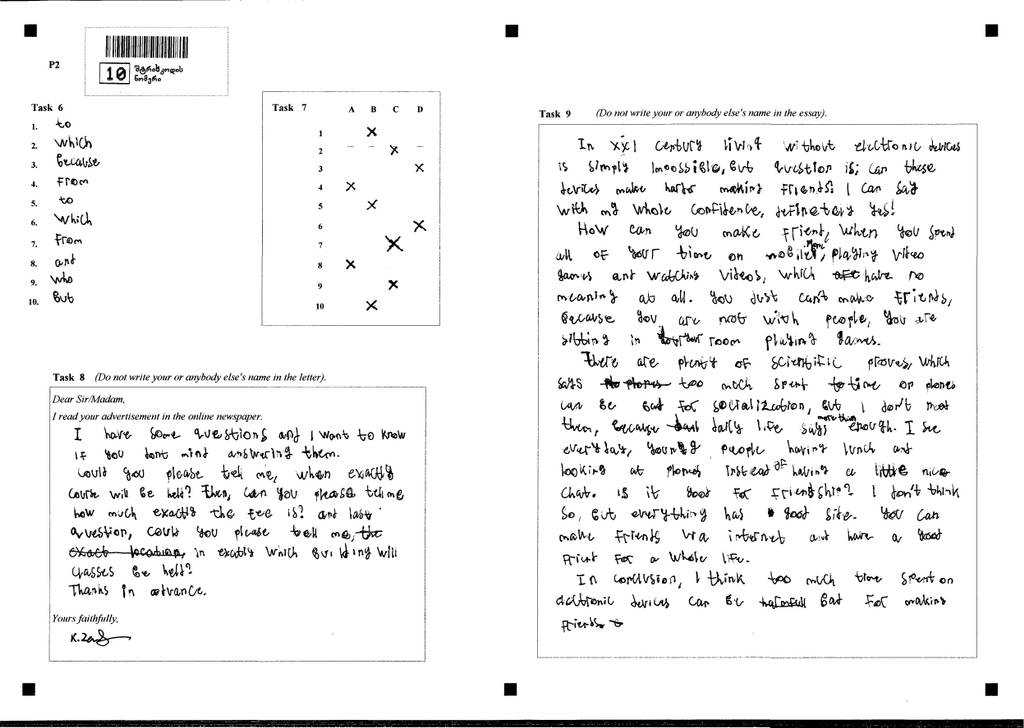 P2
10 შტრიხკოდის
ნომერი
Task 6
1. to
2. which
3. because
4. From
5. to
6. which
7. From
8. and
9. who
10. But
Task 7 A B C D
1 X
2 X
3 X
4 X
5 X
6 X
7 X
8 X
9 X
10 X
Task 8 (Do not write your or anybody else's name in the letter).
Dear Sir/Madam,
I read your advertisement in the online newspaper.
I have some questions and I want to know
if you dont mind answering them.
Could you please tell me, when exactly
course will be held? Then, can you please tell me
how much exactly the fee is? and last
question, could you please tell me, the
exact location, in exactly which building will
classes be held?
Thanks in advance.
Yours faithfully,
Task 9 (Do not write your or anybody else's name in the essay).
In XXI century living without electronic devices
is simply Imoossible, But question is; can these
devices make harder making Friends? I can say
with my whole confidence, definetely yes!
How can you make friend, when you spend
all of your time on mobile, playing video
games and watching videos, which have no
meaning at all. you Just can't make Friends,
Because you are noot with people, you are
sitting in your room playing games.
There are plenty of scientific prooves, which
says too much spent time on phones
can be bad for socialization, But I don't need
them, Because daily life says more than enough. I see
everyday, young people having lunch and
looking at phones Instead of having a little nice
chat. is it good for friendship? I don't think
so, But everything has good site. you can
make Friends via internet and have a good
Friend For a whole life.
In conclusion, I think too much time spent on
elctronic devices can be harmfull bad For making
Friends